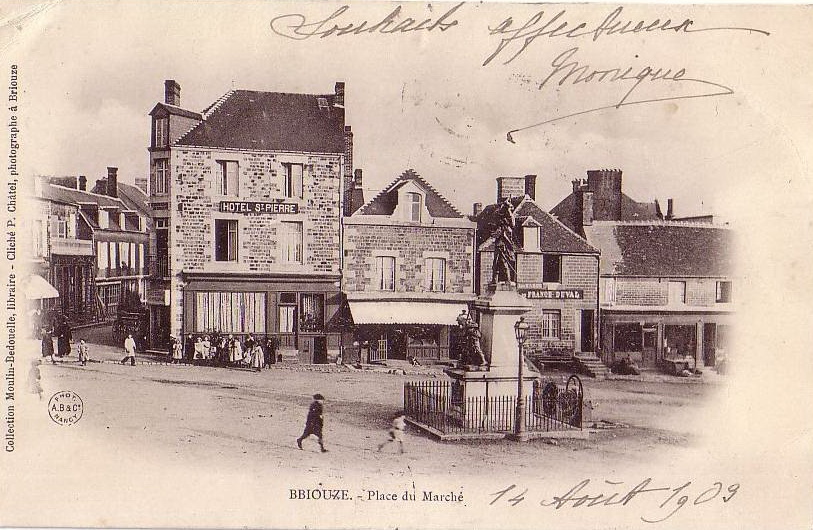 Souhaits affectueux
Monique
Collection Moulin-Bedouelle, libraire - Cliché P. Châtel, photographe à Briouze
HOTEL St PIERRE
FRANCE-DUVAL
PHOT.
A.B & Cie
NANCY
BBIOUZE. - Place du Marché
14 Août 1903